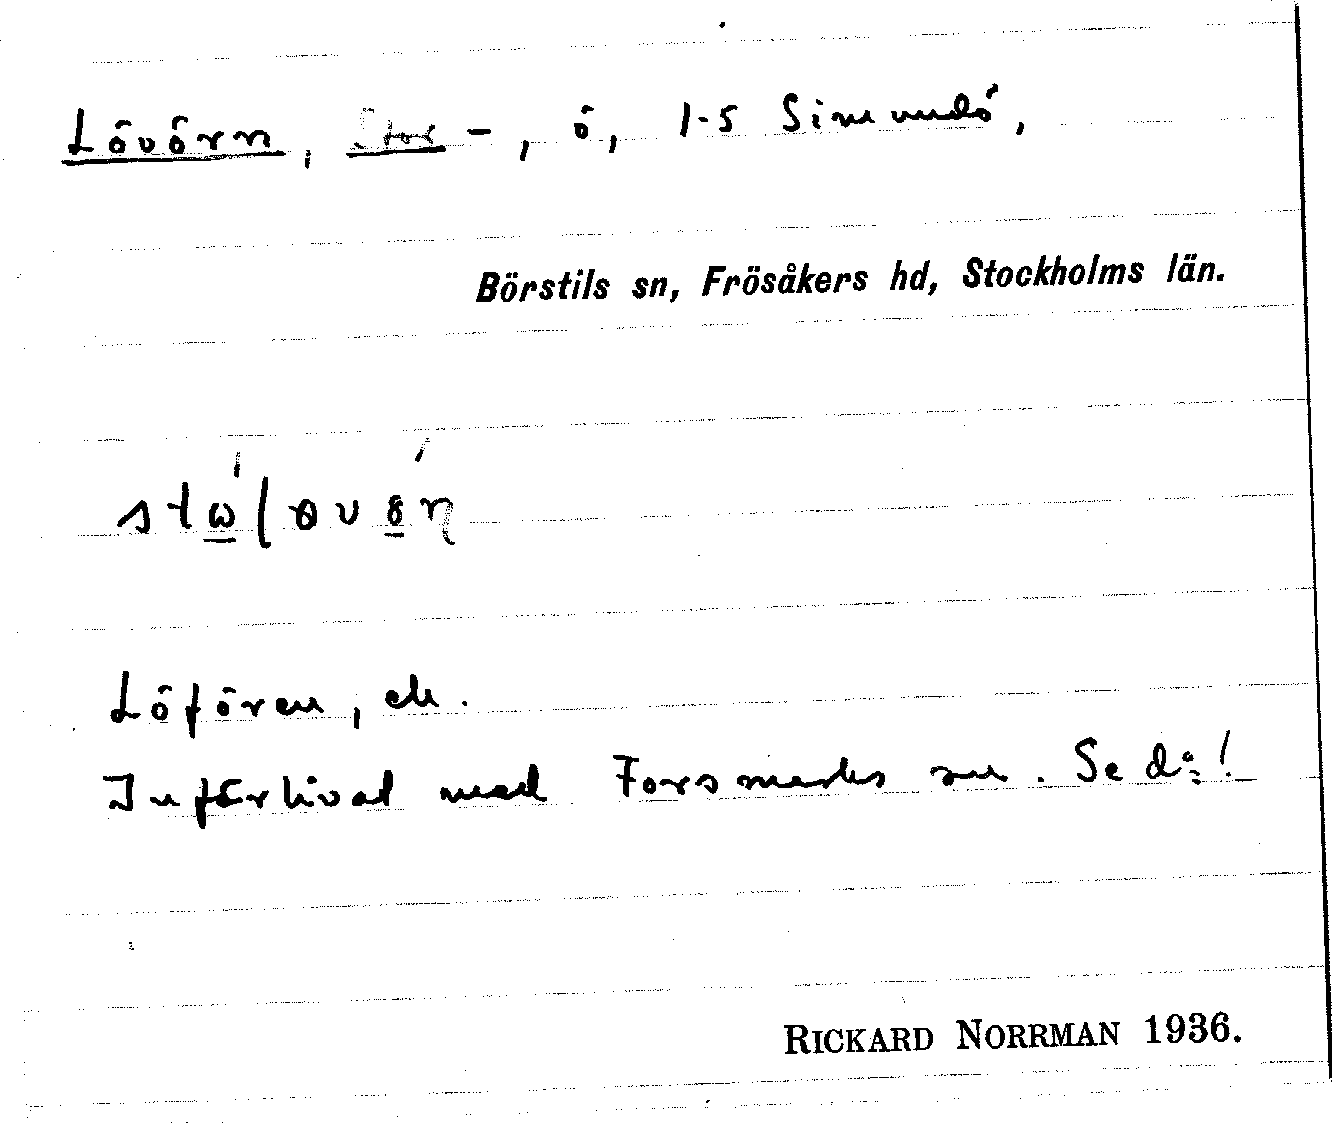 Lövörn, Stor -, ö, 1-5 Simundö,
Börstils sn, Frösåkers hd, Stockholms län.
Löfören, ek.
Införlivad med Forsmarks sn. Se d:o!
RICKARD NORRMAN 1936.